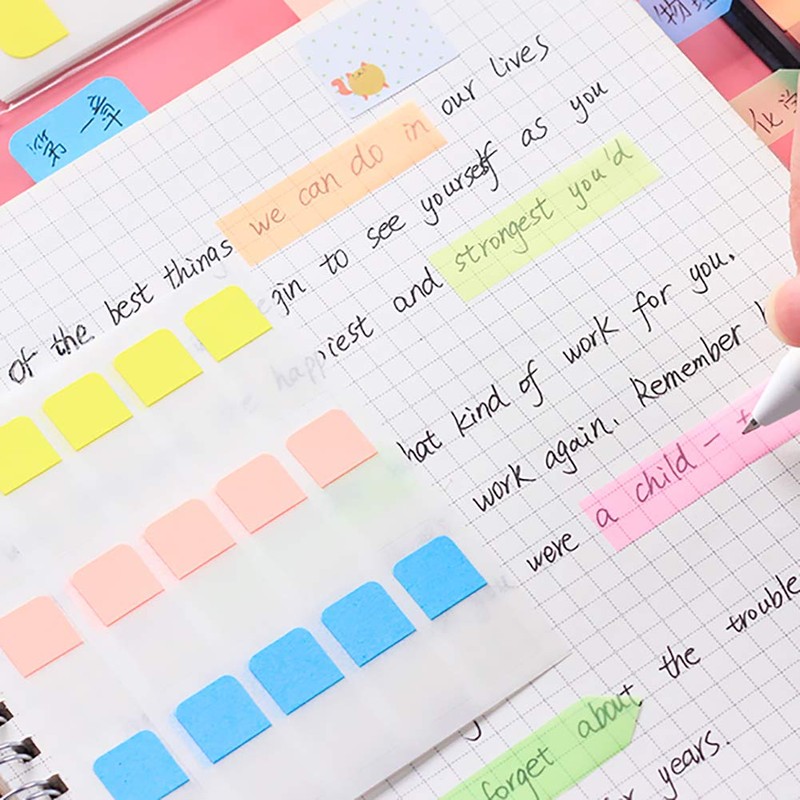 第一章
物理
化学
of the best things we can do in our lives
gin to see yourself as you
happiest and strongest you'd
hat kind of work for you.
work again. Remember
were a child -
the trouble
forget about
years.